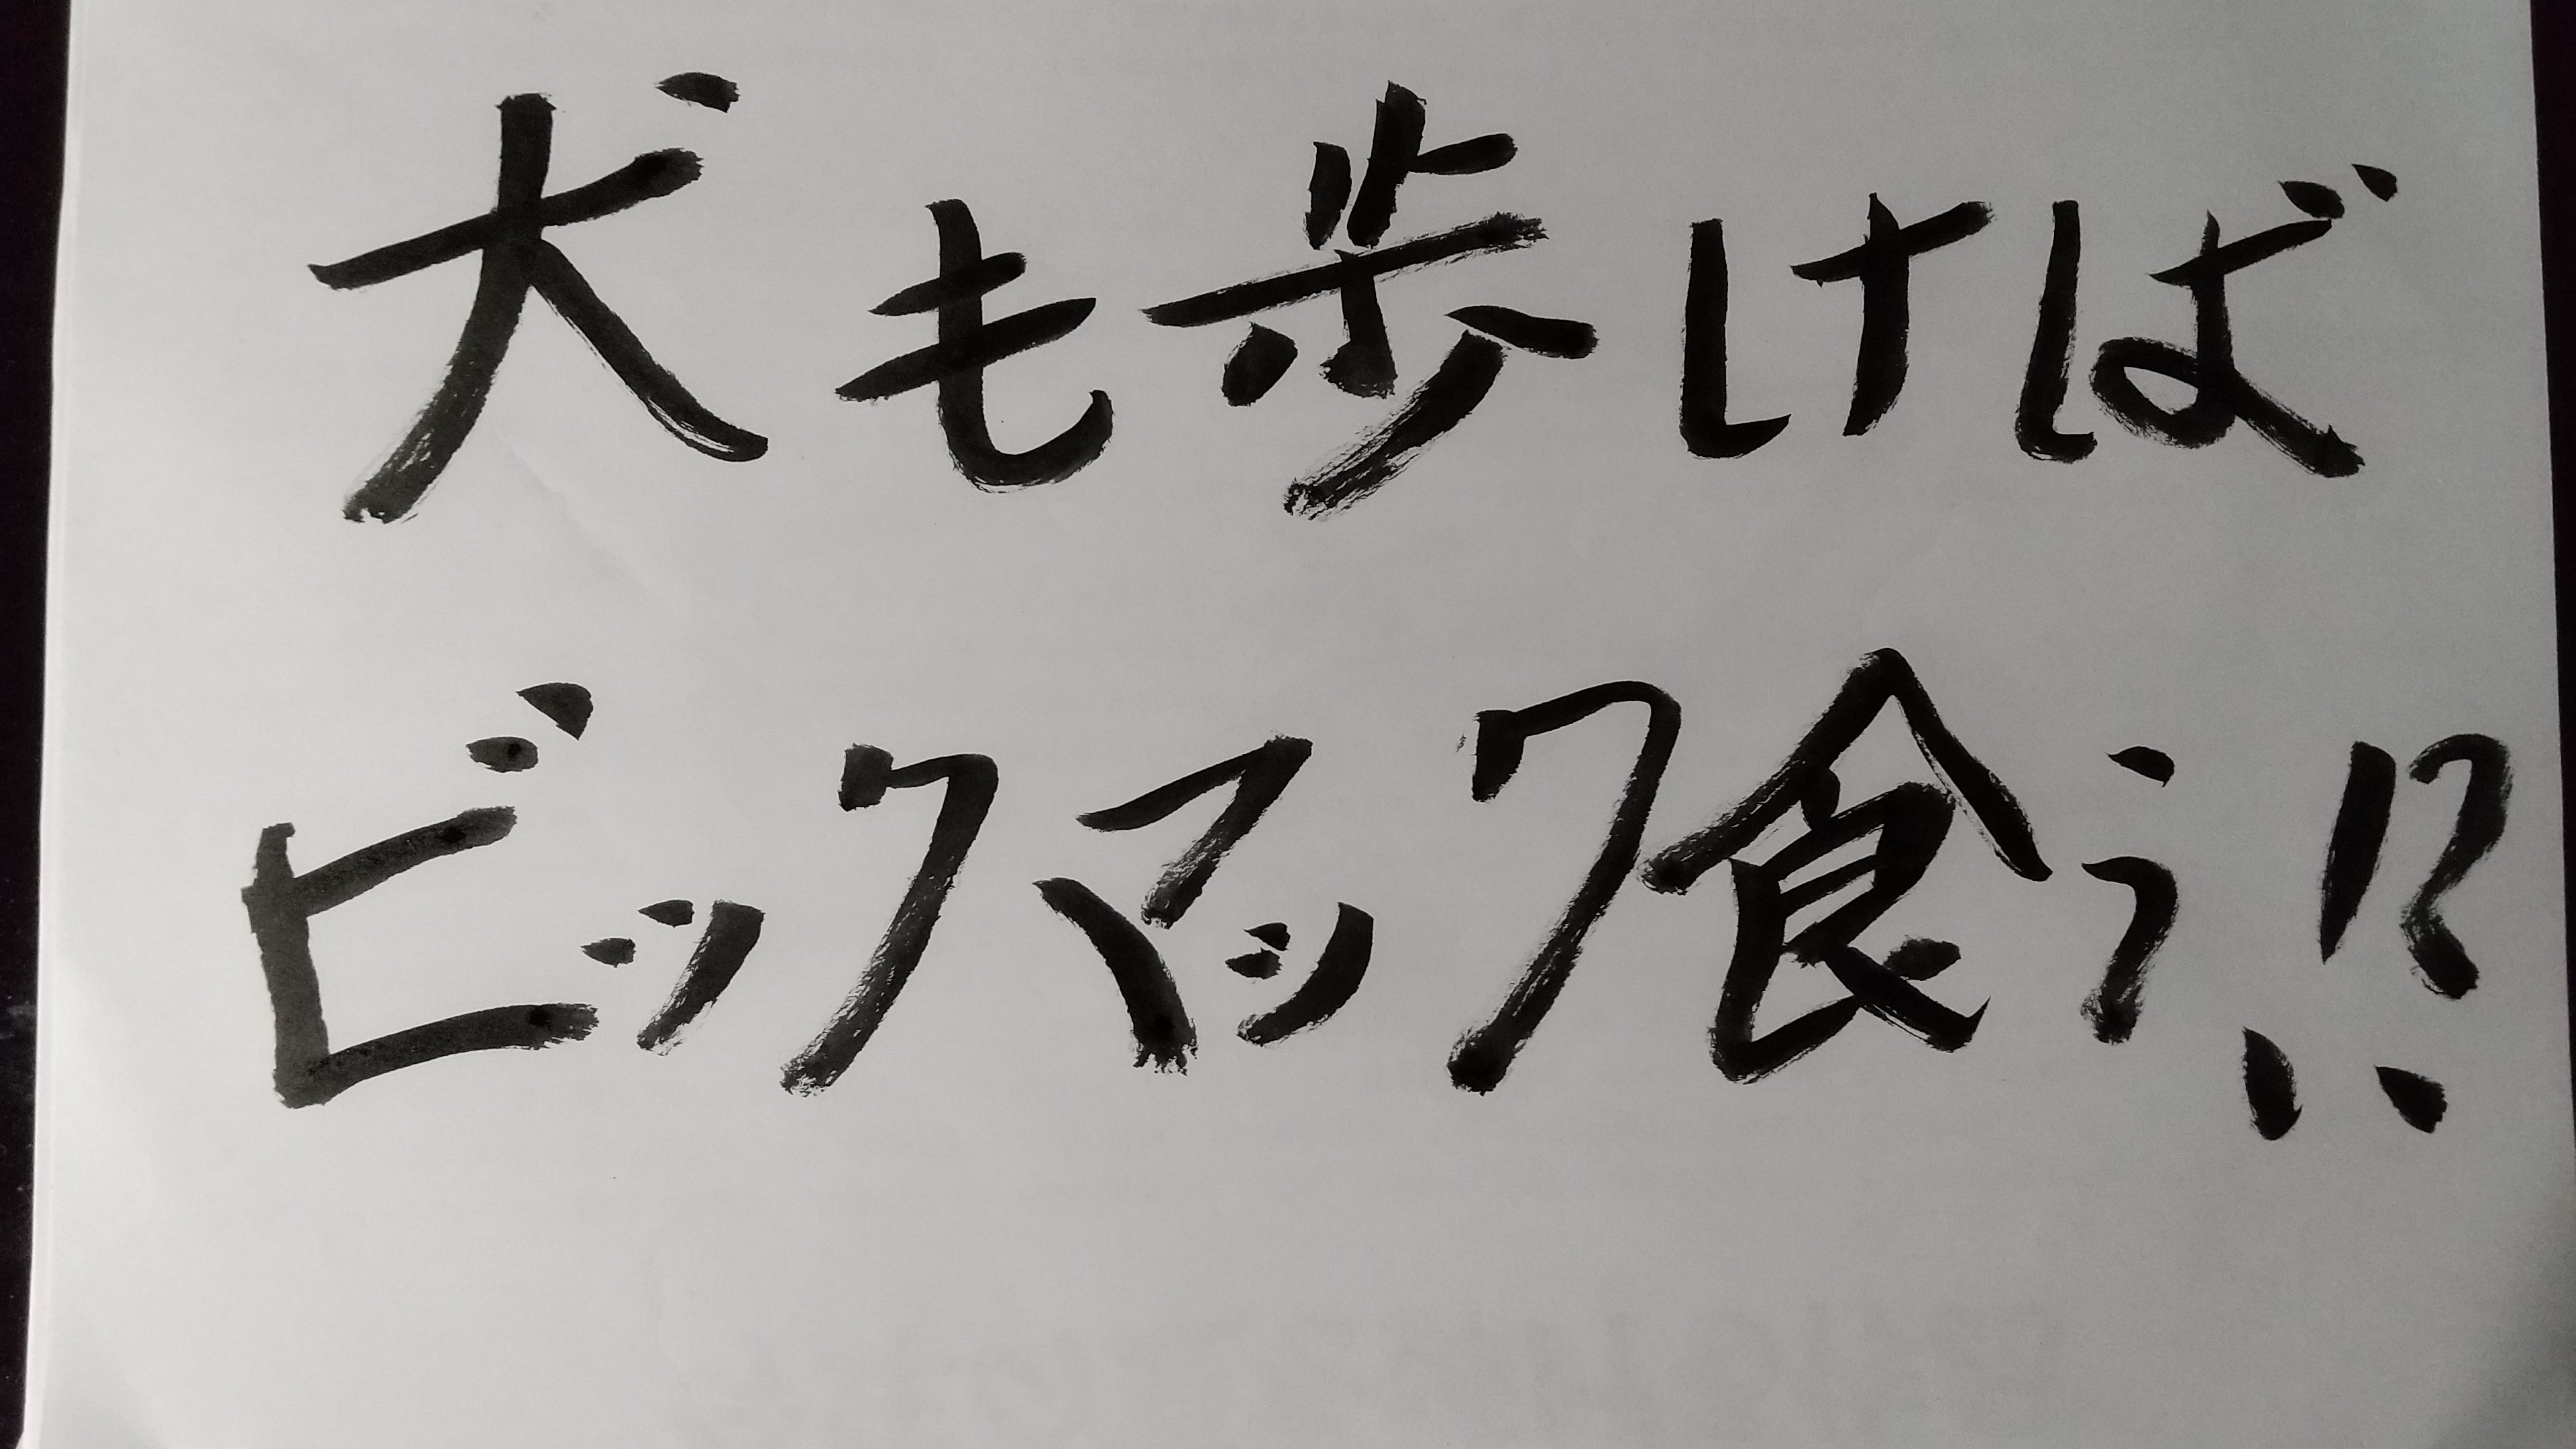 犬も歩けば
ビックマック食う!?